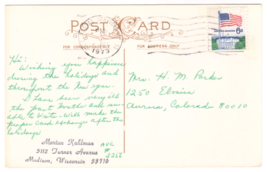 POST CARD
FOR CORRESPONDENCE
FOR ADDRESS ONLY
1973
Hi:
Wishing you happiness
during the holidays and
throughout the new year.
I have been very ill
the past month and un-
able to write. Will make the
proper card exchange after the
holidays
Mr. H. M. Parker
1250 Elmira
Aurora, Colorado 80010
Morton Kullman
902 Turner Avenue
Madison, Wisconsin